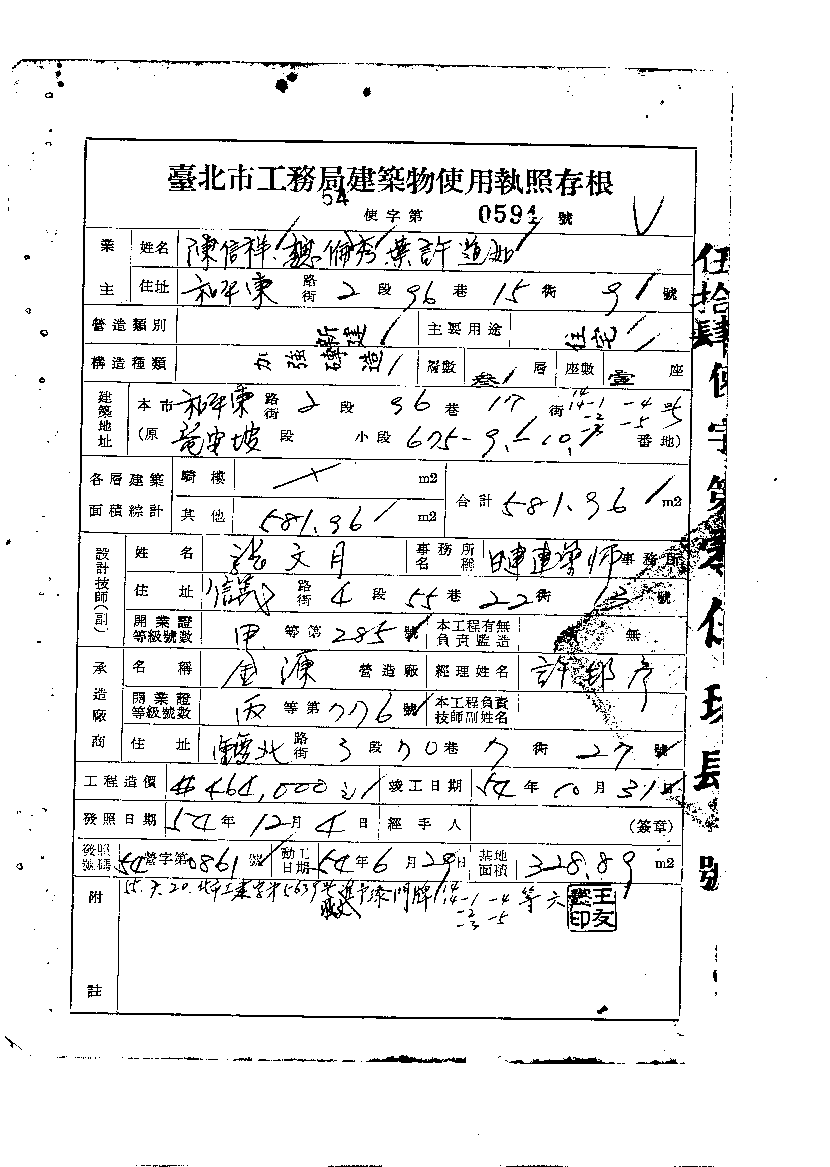 臺北市工務局建築物使用執照存根
54 使字第 0594 號
業主 姓名 陳信祥 許
住址 和平東 路街 2 段 96 巷 15 街 9 號
營造類別 新建 主要用途 住宅
構造種類 加強磚造 層數 叁 層 座數 壹 座
建築地址 本市 和平東 路街 2 段 96 巷 17 街 14 14-1 -2 -4 -5 號
(原 龍安坡 段 小段 675-9 -10 番地)
各層建築面積綜計 騎樓 m2 合計 581.96 m2
其他 581.96 m2
設計技師(副) 姓名 文月 事務所名稱 建築師 事務所
住址 信義 路街 4 段 55 巷 22 街 13 號
開業證等級號數 甲 等第 285 號 本工程有無負責監造 無
承造廠商 名稱 金源 營造廠 經理姓名 許
開業證等級號數 丙 等第 776 號 本工程負責技師副姓名
住址 北 路街 3 段 70 巷 7 街 27 號
工程造價 #464,000 竣工日期 54 年 10 月 31 日
發照日期 54 年 12 月 4 日 經手人 (簽章)
發照號碼 54 營字第 0861 號 動工日期 54 年 6 月 29 日 基地面積 328.89 m2
附註 55.7.20. 北市工 字 5639 門牌 14 14-1 -2 -3 -4 -5 等六
王友 印
伍拾肆使字第零伍玖肆號